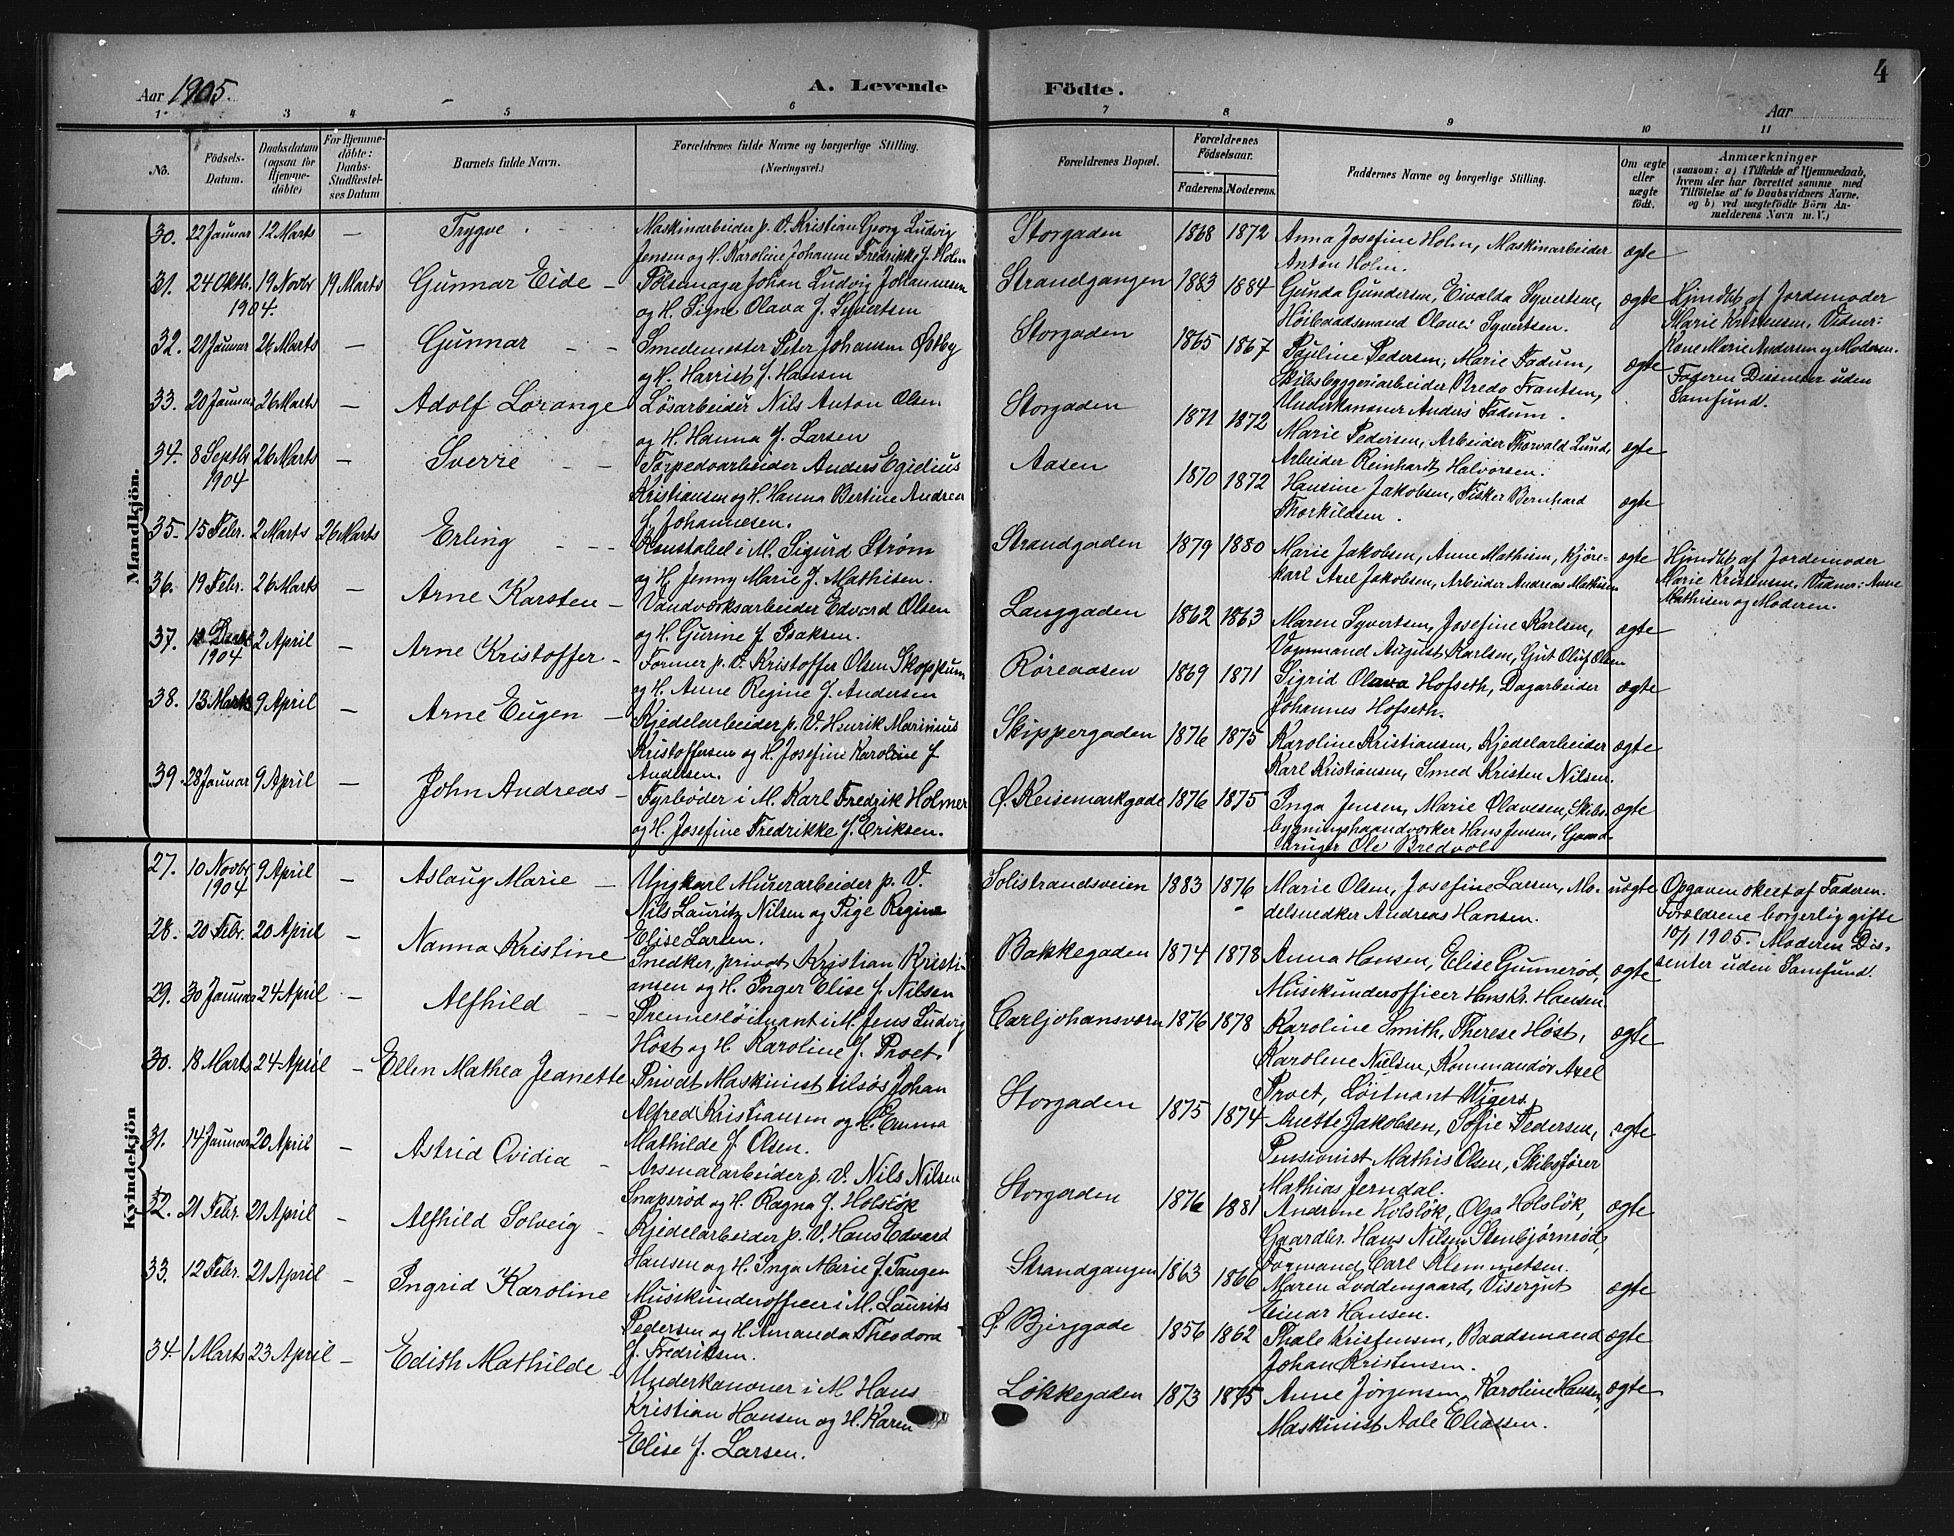 Aar 1905.
A. Levende
Födte.
4
Aar
1
3
4
5
6
7
8
9
10
11
No.
Födsels-
Datum.
Daabsdatum
(ogsaa for
Hjemme-
döbte)
For Hjemme-
döbte:
Daabs-
Stadfæstel-
ses Datum
Barnets fulde Navn.
Forældrenes fulde Navne og borgerlige Stilling.
(Næringsvei.)
Forældrenes Bopæl.
Forældrenes
Födselsaar.
Faderens.
Moderens.
Faddernes Navne og borgerlige Stilling.
Om ægte
eller
uægte
födt.
Anmærkninger
(saasom: a) i Tilfælde af Hjemmedaab,
hvem der har forrettet samme med
Tilföielse af to Daabsvidners Navne,
og b) ved uægtefödte Börn An-
melderens Navn m. V.)
Mandkjön.
30. 22 Januar 12 Marts — Trygve
Maskinarbeider p. V. Kristian Georg Ludvig
Jensen og H. Karoline Johanne Fredrikke f. Holm
Storgaden 1868 1872
Anna Josefine Holm, Maskinarbeider
Anton Holm.
ægte —
31. 24 Oktb. 19 Novbr 19 Marts Gunnar Eide —
1904.
Pölsemager Johan Ludvig Johannesen
og H. Signe Olava f. Syvertsen
Strandgangen 1883 1884
Gunda Gundersen, Eivalda Syvertsen,
Høibaadsmand Olaves Syvertsen.
ægte
Hjmdbt af Jordemoder
Marie Kristensen, Vidner:
Kone Marie Andersen og Moderen.
32. 21 Januar 26 Marts — Gunnar — —
Smedemester Peter Johansen Østby
og H. Harriet f. Hansen
Storgaden 1865 1867
Pauline Pedersen, Marie Fadum,
Skibsbyggeriarbeider Bredo Frantsen,
Underkanoner Anders Fadum.
ægte
Faderen Dissenter uden
Samfund.
33. 20 Januar 26 Marts — Adolf Lorange
Løsarbeider Nils Anton Olsen
og H. Hanna f. Larsen
Storgaden 1871 1872
Marie Pedersen, Arbeider Thorvald Lund,
Arbeider Reinhardt Halvorsen.
ægte
34. 8 Septb 26 Marts — Sverre — —
1904
Torpedoarbeider Anders Egidius
Kristiansen og H. Hanna Bertine Andrea
f. Johannesen.
Aasen 1870 1872
Hansine Jakobsen, Fisker Bernhard
Thorkildsen.
ægte
35. 15 Febr. 2 Marts 26 Marts Erling — —
Konstabel i M. Sigurd Strøm
og H. Jenny Marie f. Mathisen.
Strandgaden 1879 1880
Marie Jakobsen, Anne Mathisen, Kjøre-
karl Axel Jakobsen, Arbeider Andreas Mathisen
ægte
Hjmdbt af Jordemoder
Marie Kristensen, Vidner: Anne
Mathisen og Moderen.
36. 19 Febr. 26 Marts — Arne Karsten —
Vandværksarbeider Edvard Olsen
og H. Gurine f. Isaksen.
Langgaden 1862 1863
Maren Syvertsen, Josefine Karlsen,
Vognmand August Karlsen, Gut Oluf Olsen
ægte
37. 12 2 April — Arne Kristoffer —
1904
Former p. V. Kristoffer Olsen Skoppum
og H. Anne Regine f. Andersen
Røreaasen 1869 1871
Sigrid Olava Hofseth, Dagarbeider
Johannes Hofseth.
ægte
38. 13 Marts 9 April — Arne Eugen —
Kjedelarbeider p. V. Henrik Marinius
Kristoffersen og H. Josefine Karoline f.
Andersen.
Skippergaden 1876 1875
Karoline Kristiansen, Kjedelarbeider
Karl Kristiansen, Smed Kristen Nilsen.
ægte
39. 28 Januar 9 April — John Andreas —
Fyrbøder i M. Karl Fredrik Holmer
og H. Josefine Fredrikke f. Eriksen.
Ø. Keisemarkgade 1876 1875
Inga Jensen, Marie Olavesen, Skibs-
bygningshaandverker Hans Jensen, Gaard-
bruger Ole Bredvol
ægte
Kvindekjön
27. 10 Novbr 9 April — Aslaug Marie —
1904
Ungkarl Murerarbeider p. V.
Nils Lauritz Nilsen og Pige Regine
Elise Larsen.
Solistrandsveien 1883 1876
Marie Olsen, Josefine Larsen, Mo-
delsnedker Andreas Hansen.
uægte
Opgaven okert af Faderen.
Forældrene borgerlig gifte
10/1 1905. Moderen Dis-
senter uden Samfund.
28. 20 Febr. 20 April — Nanna Kristine
Snedker, privat Kristian Kristi-
ansen og H. Inger Elise f. Nilsen
Bakkegaden 1874 1878
Anna Hansen, Elise Gunnerød,
Musikunderofficer Hans Kr. Hansen
ægte
29. 30 Januar 24 April — Alfhild — —
Premierløitnant i M. Jens Ludvig
Høst og H. Karoline f. Proet.
Carljohansværn 1876 1878
Karoline Smith, Therese Høst,
Karoline Nielsen, Kommandør Axel
Proet, Løitnant Wigers.
ægte
30. 18 Marts 24 April — Ellen Mathea Jeanette
Privat Maskinist tilsøs Johan
Alfred Kristiansen og H. Emma
Mathilde f. Olsen.
Storgaden 1875 1874
Anette Jakobsen, Sofie Pedersen,
Pensionist Mathis Olsen, Skibsfører
Mathias Jerndal.
ægte
31. 14 Januar 20 April — Astrid Ovidia —
Arsenalarbeider p. V. Nils Nilsen
Snaperød og H. Ragna f. Holsløk
Storgaden 1876 1881
Andrine Holsløk, Olga Holsløk,
Gaardbr. Hans Nilsen Stenbjørnrød,
Formand Carl Klemmetsen.
ægte
32. 21 Febr. 21 April — Alfhild Solveig —
Kjedelarbeider p. V. Hans Edvard
Hansen og H. Inga Marie f. Tangen
Strandgangen 1863 1866
Maren Loddengaard, Visergut
Einar Hansen.
ægte
33. 12 Febr. 21 April — Ingrid Karoline
Musikunderofficer i M. Laurits
Pedersen og H. Amanda Theodora
f. Fredriksen.
Ø. Bjerggade 1856 1862
Thale Kristensen, Baadsmand
Johan Kristensen.
ægte
34. 1 Marts 23 April — Edith Mathilde
Underkanoner i M. Hans
Kristian Hansen og H. Karen
Elise f. Larsen.
Løkkegaden 1873 1875
Anne Jørgensen, Karoline Hansen,
Maskinist Aale Eliassen.
ægte